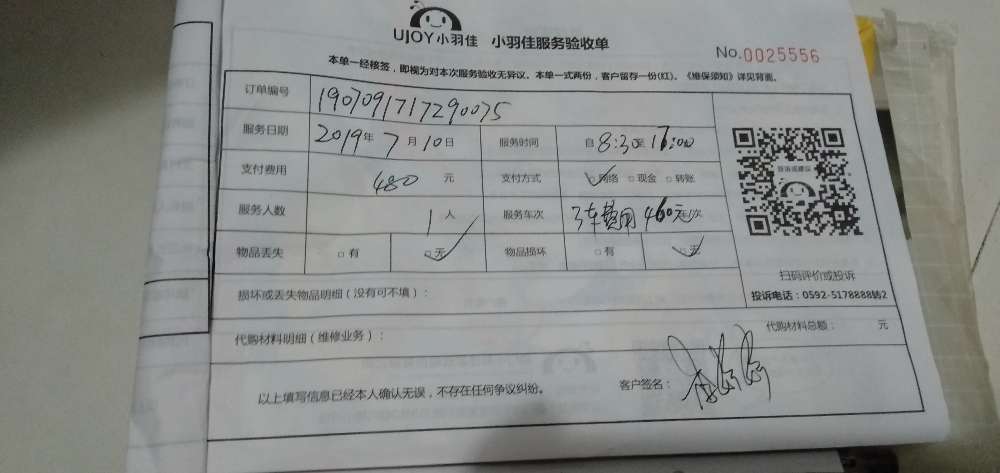 UJOY小羽佳 小羽佳服务验收单
No.0025556
本单一经核签，即视为对本次服务验收无异议。本单一式两份，客户留存一份(红)。《维保须知》详见背面。
订单编号 1907091717290075
服务日期 2019年7月10日 服务时间 自8:30至17:00
支付费用 480元 支付方式 □网络 □现金 □转账
服务人数 1人 服务车次 3车费用460元/次
物品丢失 □有 □无 物品损坏 □有 □无
扫码评价或投诉
投诉电话：0592-5178888转2
损坏或丢失物品明细（没有可不填）：
代购材料明细（维修业务）： 代购材料总额： 元
以上填写信息已经本人确认无误，不存在任何争议纠纷。 客户签名：